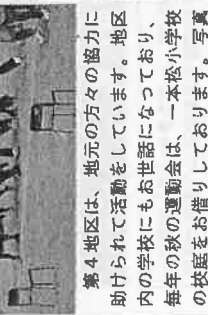 第4地区は、地元の方々の協力に
助けられて活動をしています。地区
内の学校にもお世話になっており、
毎年の秋の運動会は、一本松小学校
の校庭をお借りしております。写真